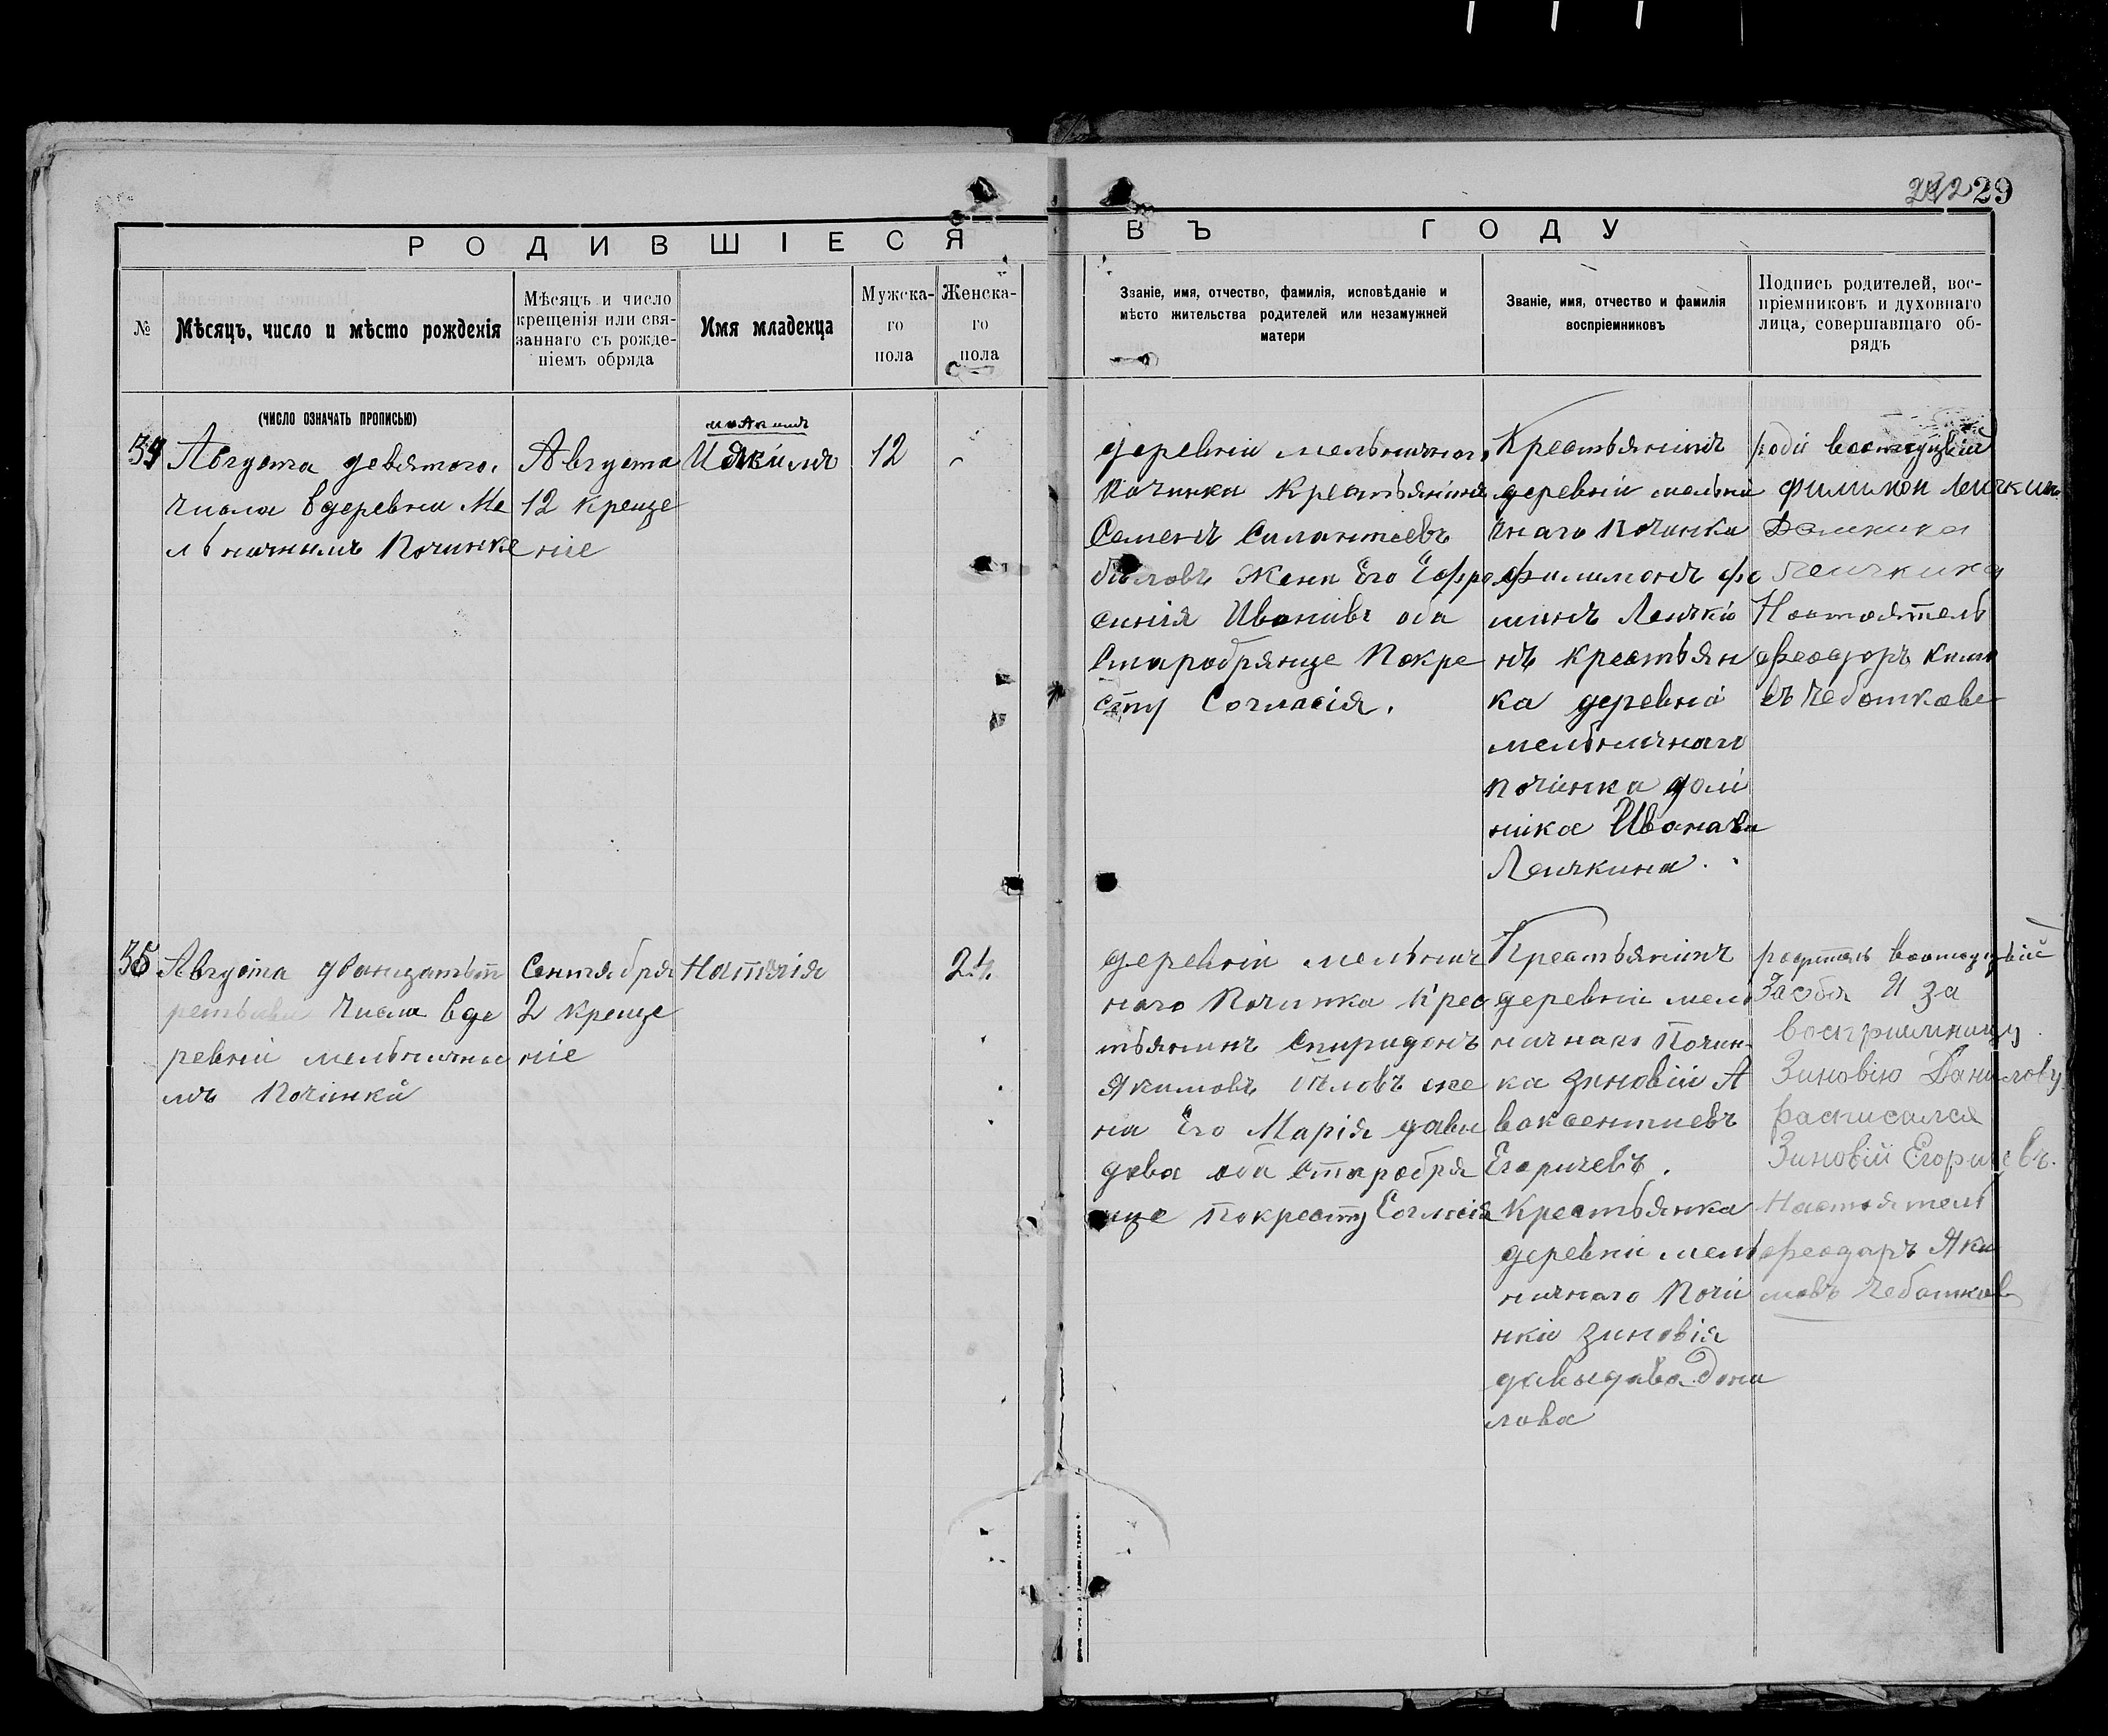 29
РОДИВШІЕСЯ
ВЪ ГОДУ
№
Мѣсяцъ, число и мѣсто рожденія
Мѣсяцъ и число
крещенія или свя-
заннаго съ рожде-
ніемъ обряда
Имя младенца
Мужска-
го
пола
Женска-
го
пола
Званіе, имя, отчество, фамилія, исповѣданіе и
мѣсто жительства родителей или незамужней
матери
Званіе, имя, отчество и фамилія
воспріемниковъ
Подпись родителей, вос-
пріемниковъ и духовнаго
лица, совершавщаго об-
рядъ
(ЧИСЛО ОЗНАЧАТЬ ПРОПИСЬЮ)
Августа девятого
числа вдеревни Ме
льничнымъ Починке
Августа
12 креще
ніе
12
деревни мельничнаго
Починка Крестьянинъ
Семенъ Силантьевъ
Жена Его Ефро
синія Иванова оба
Старобрянце Покре
сту Согласія.
Крестьянинъ
деревни мельни
чнаго Починка
Филимонъ Фо
минъ Леичкі
нъ крестьян
ка деревни
мельничнаго
починка доми
ника Иванова
Леичкина.
Филимон Леичкин
Домника
Леичкина
Настоятель
Феодоръ
Чеботкове
35
Августа двадцать т
ретьева числа вде
ревни мельничны
мъ Починки
Сентября
2 креще
ніе
Наталія
24
деревни мельнич
наго Починка Крес
тьянинъ Спиридонъ
Якимовъ Бѣловъ же
на Его Марія давы
дова оба Старобря
нце Покресту Согласія
Крестьянинъ
деревни мель
ничнаго Почин
ка Зиновій А
вксентиевъ
Егоричевъ.
Крестьянка
деревни мель
ничнаго Почи
нки Зиновія
давыдова Дани
лова
За себя И за
воспріимницу
Зиновію Данилову
расписался
Зиновій Егоричевъ.
Настоятель
Феодоръ Яки
мовъ Чеботков